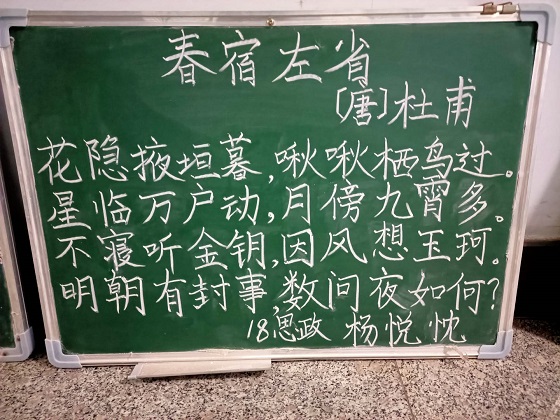 春宿左省
〔唐〕杜甫
花隐掖垣暮,啾啾栖鸟过。
星临万户动,月傍九霄多。
不寝听金钥,因风想玉珂。
明朝有封事,数问夜如何?
18思政 杨悦忱